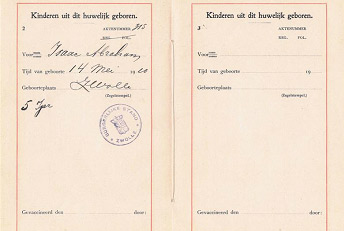 Kinderen uit dit huwelijk geboren.
2 AKTENUMMER 315
DEEL FOL.
Voornaam Isaac Abraham,
Tijd van geboorte 14 Mei 19
Geboorteplaats Zwolle
(Zegelstempel.)
BURGERLIJKE STAND
ZWOLLE
Gevaccineerd den door:
Kinderen uit dit huwelijk geboren.
3 AKTENUMMER
DEEL FOL.
Tijd van geboorte 19
Geboorteplaats
(Zegelstempel.)
Gevaccineerd den door: